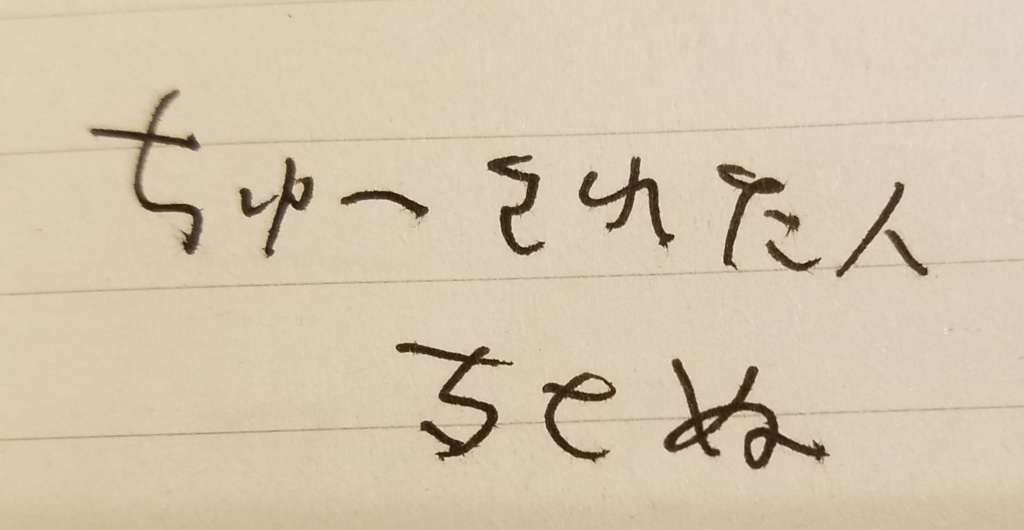 ちゅーされた人
ちてぬ